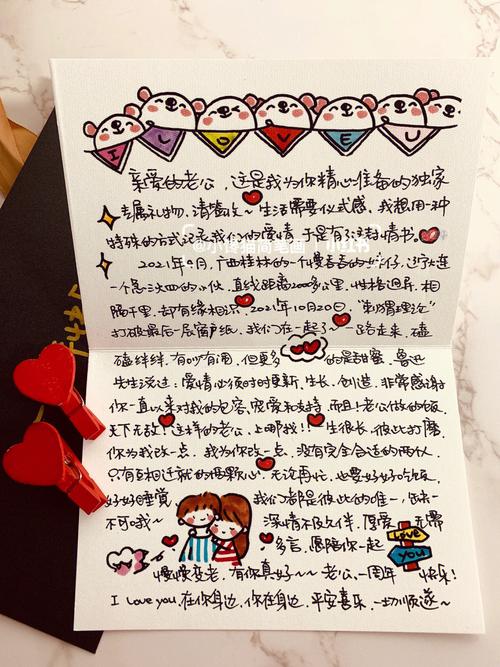 I L O V E U
亲爱的老公，这是我为你精心准备的独家
专属礼物，请签收~ 生活需要仪式感，我想用一种
特殊的方式记录我们的爱情，于是有了这封情书。
2021年1月，广西桂林的一个慢吞吞的妹仔，辽宁大连
一个急冲冲的小伙，直线距离2000多公里，性格迥异，相
隔千里，却有缘相识。2021年10月20日，“刺猬理论”
打破最后一层窗户纸，我们在一起了~一路走来，磕
磕绊绊，有吵有闹，但更多的是甜蜜。鲁迅
先生说过：爱情必须时时更新，生长，创造。非常感谢
你一直以来对我的包容，宠爱和支持，而且！老公做的饭
天下无敌！这样的老公，上哪找！！一生很长，彼此打磨
你为我改一点，我为你改一点，没有完全合适的两个人
只有互相迁就的两颗心。无论再忙，也要好好吃饭
好好睡觉 我们都是彼此的唯一，缺一
不可哦~ 深情不及久伴，厚爱无需
多言，愿陪你一起
慢慢变老，有你真好~~ 老公，一周年快乐！
I Love you，在你身边，你在身边，平安喜乐，一切顺遂~
Love
you